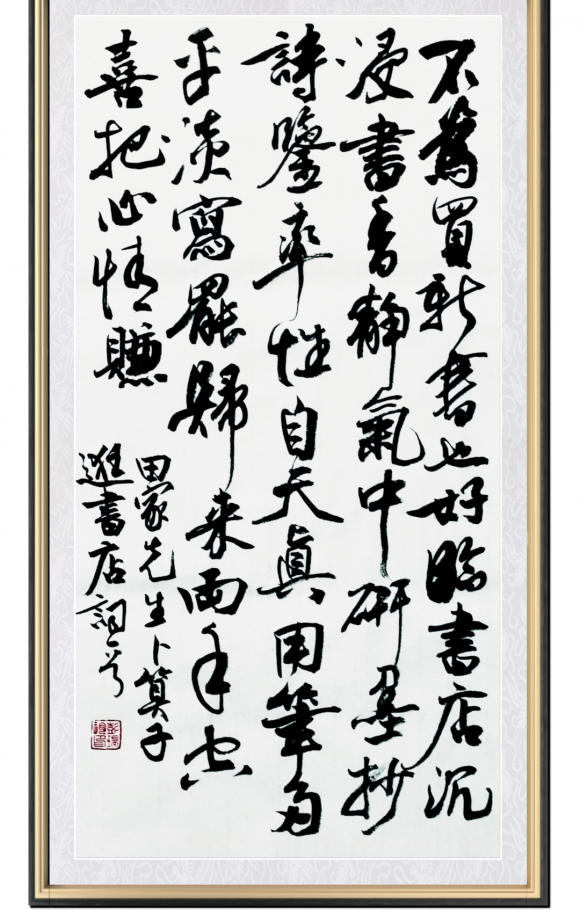 不為買新書也好臨書店沉
浸書香靜氣中研墨抄
詩鑒率性自天真用筆多
平淡寫罷歸來兩手空
喜把心情賺
田家先生卜算子
逛書店詞一首